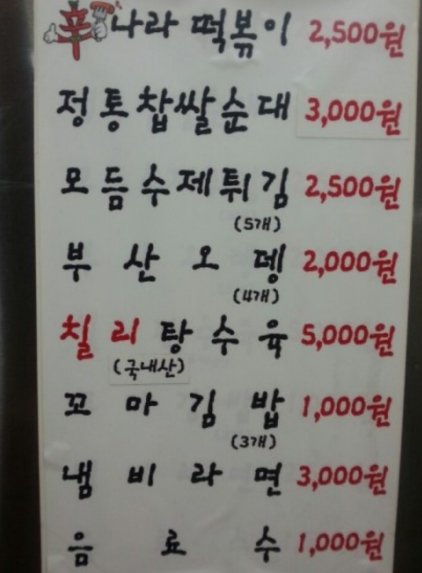 辛나라 떡볶이 2,500원
정통찹쌀순대 3,000원
모듬수제튀김 2,500원
(5개)
부산오뎅 2,000원
(4개)
칠리탕수육 5,000원
(국내산)
꼬마김밥 1,000원
(3개)
냄비라면 3,000원
음료수 1,000원